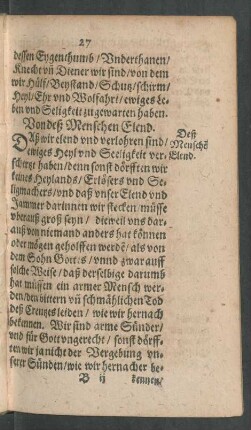 27
dessen Eygenthumb / Vnderthanen /
Knecht vñ Diener wir sind / von dem
wir Hülf / Beystand / Schutz / schirm /
Heyl / Ehr vnd Wolfahrt / ewiges Le-
ben vnd Seligkeit zu gewarten haben.
Von deß Menschen Elend.
Deß
Menschē
Elend.
Daß wir elend vnd verlohren sind /
ewiges Heyl vnd Seeligkeit ver-
schertzt haben / denn sonst dörfften wir
keines Heylands / Erlösers vnd Se-
ligmachers / vnd daß vnser Elend vnd
Jammer darinnen wir stecken / müsse
vberauß groß seyn / dieweil vns dar-
auß von niemand anders hat können
oder mögen geholffen werdē / als von
dem Sohn Gottes / vnnd zwar auff
solche Weise / daß derselbige darumb
hat müssen ein armer Mensch wer-
den / den bittern vñ schmählichen Tod
deß Creutzes leiden / wie wir hernach
bekennen. Wir sind arme Sünder /
vnd für Gott vngerecht / sonst dörff-
ten wir ja nicht der Vergebung vn-
serer Sünden / wie wir hernacher be-
B ij
kennen /